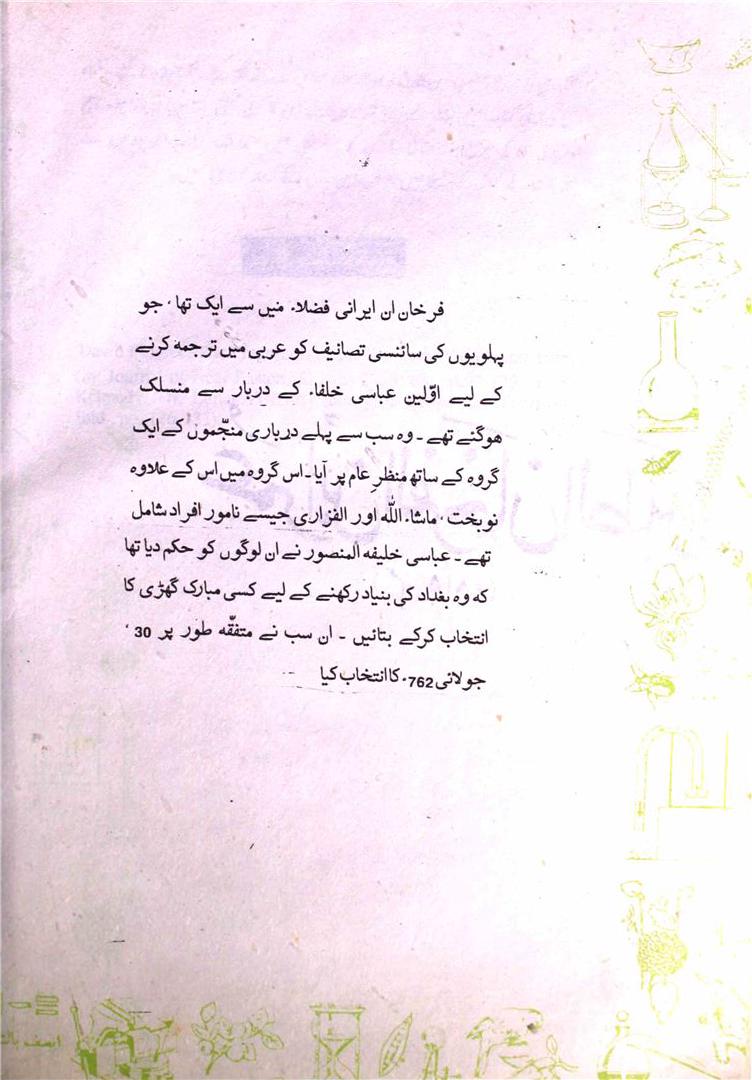 فرخان ان ایرانی فضلاء میں سے ایک تھا، جو
پہلویوں کی سائنسی تصانیف کو عربی میں ترجمہ کرنے
کے لیے اوّلین عباسی خلفاء کے دربار سے منسلک
ہوگئے تھے ۔ وہ سب سے پہلے درباری منجّموں کے ایک
گروہ کے ساتھ منظرِ عام پر آیا ۔ اس گروہ میں اس کے علاوہ
نوبخت، ماشاء اللّٰہ اور الفزاری جیسے نامور افراد شامل
تھے ۔ عباسی خلیفہ المنصور نے ان لوگوں کو حکم دیا تھا
کہ وہ بغداد کی بنیاد رکھنے کے لیے کسی مبارک گھڑی کا
انتخاب کرکے بتائیں ۔ ان سب نے متفقّہ طور پر 30،
جولائی 762ء کا انتخاب کیا